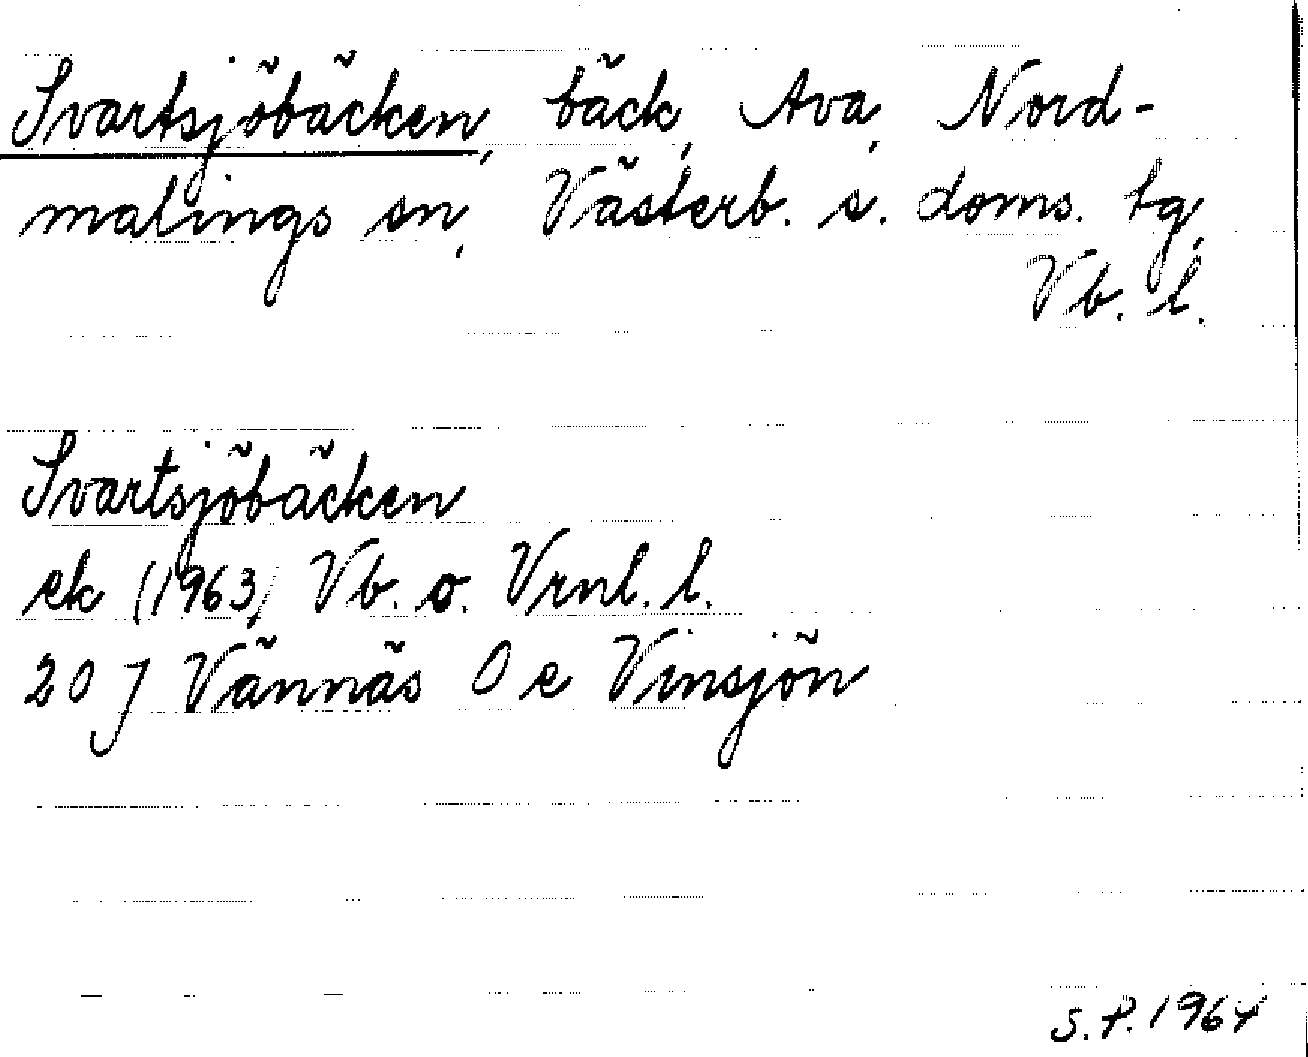 Svartsjöbäcken, bäck, Ava, Nord-
malings sn, Västerb. s. doms. tg,
Vb. l.
Svartsjöbäcken
ek (1963) Vb. o. Vrnl. l.
20 J Vännäs O e Vinsjön
S.P. 1964